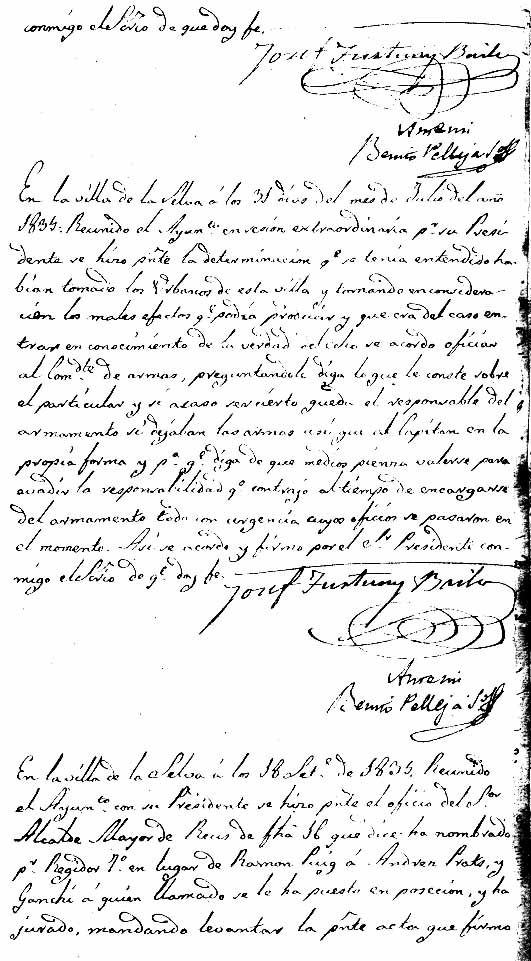 conmigo el Srio de que doy fe.
Josef Fortuny Baile
Ante mi
Benito Pellejá Srio
En la villa de la Selva á los 31 dias del mes de Julio del año
1835. Reunido el Ayunto en sesion extraordinaria pr su Presi-
dente se hizo pnte la determinacion qe se tenia entendido ha-
bian tomado los Urbanos de esta villa y tomando en considera-
cion los males efectos qe podria producir y que era del caso en-
trar en conocimiento de la verdad se acordo oficiar
al Comdte de armas, preguntandole diga lo que le conste sobre
el particular y si acaso ser cierto queda el responsable del
armamento si dejaban las armas asi que al Capitan en la
propia forma y pa qe diga de que medios piensa valerse para
avadir la responsabilidad qe contrajo al tiempo de encargarse
del armamento todo con urgencia cuyos oficios se pasaron en
el momento. Asi se acordo y firmo por el Sr Presidente con-
migo el Srio de qe doy fe.
Josef Fortuny Baile
Ante mi
Benito Pellejá Srio
En la villa de la Selva á los 18 Sete de 1835. Reunido
el Ayunto con su Presidente se hizo pnte el oficio del Sor
Alcalde Mayor de Reus de fha 16 que dice ha nombrado
pr Regidor 7o en lugar de Ramon Puig á Andres Prats, y
Ganchi á quien llamado se le ha puesto en posecion, y ha
jurado, mandando levantar la pnte acta que firmo